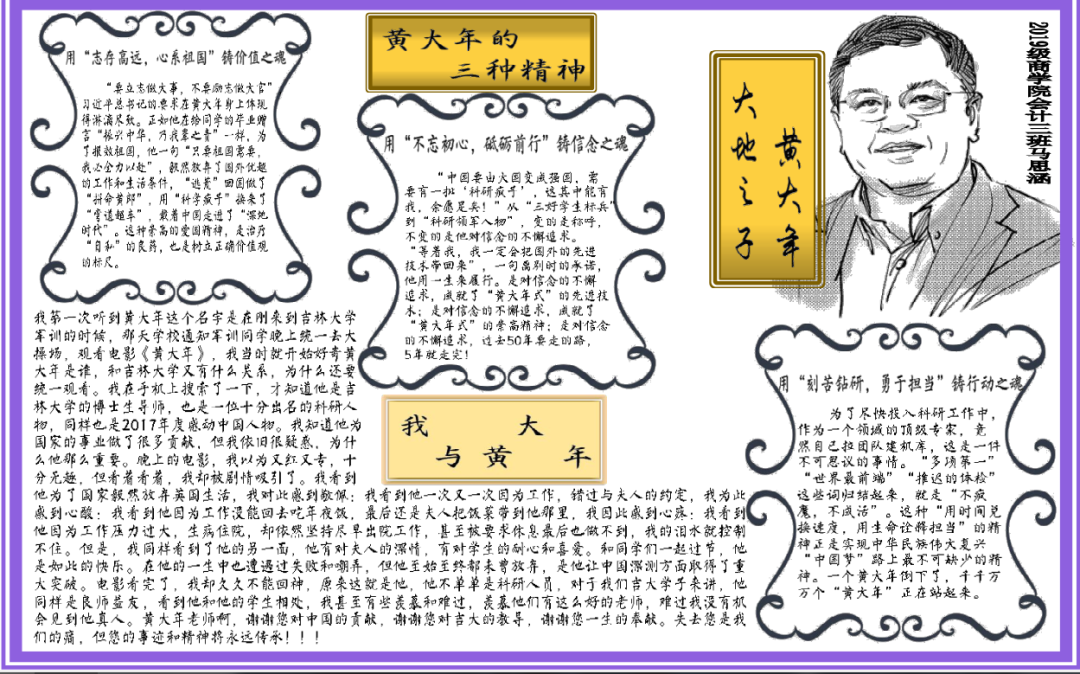 用“志存高远，心系祖国”铸价值之魂
“要立志做大事，不要励志做大官”
习近平总书记的要求在黄大年身上体现
得淋漓尽致。正如他在给同学的毕业赠
言“振兴中华，乃我辈之责”一样，为
了报效祖国，他一句“只要祖国需要，
我必全力以赴”，毅然放弃了国外优越
的工作和生活条件，“逃荒”回国做了
“拼命黄郎”，用“科学疯子”换来了
“弯道超车”，载着中国走进了“深地
时代”。这种崇高的爱国精神，是治疗
“自私”的良药，也是树立正确价值观
的标尺。
黄大年的
三种精神
用“不忘初心，砥砺前行”铸信念之魂
“中国要由大国变成强国，需
要有一批‘科研疯子’，这其中能有
我，余愿足矣！”从“三好学生标兵”
到“科研领军人物”，变的是称呼，
不变的是他对信念的不懈追求。
“等着我，我一定会把国外的先进
技术带回来”，一句离别时的承诺，
他用一生来履行。是对信念的不懈
追求，成就了“黄大年式”的先进技
术；是对信念的不懈追求，成就了
“黄大年式”的崇高精神；是对信念
的不懈追求，过去50年要走的路，
5年就走完！
大地之子
黄大年
2019级商学院会计三班马思涵
我 大
与黄 年
我第一次听到黄大年这个名字是在刚来到吉林大学
军训的时候，那天学校通知军训同学晚上统一去大
操场，观看电影《黄大年》，我当时就开始好奇黄
大年是谁，和吉林大学又有什么关系，为什么还要
统一观看。我在手机上搜索了一下，才知道他是吉
林大学的博士生导师，也是一位十分出名的科研人
物，同样也是2017年度感动中国人物。我知道他为
国家的事业做了很多贡献，但我依旧很疑惑，为什
么他那么重要。晚上的电影，我以为又红又专，十
分无趣，但看着看着，我却被剧情吸引了。我看到
他为了国家毅然放弃英国生活，我对此感到敬佩；我看到他一次又一次因为工作，错过与夫人的约定，我为此
感到心酸；我看到他因为工作没能回去吃年夜饭，最后还是夫人把饭菜带到他那里，我因此感到心疼；我看到
他因为工作压力过大，生病住院，却依然坚持尽早出院工作，甚至被要求休息最后也做不到，我的泪水就控制
不住。但是，我同样看到了他的另一面，他有对夫人的深情，有对学生的耐心和喜爱。和同学们一起过节，他
是如此的快乐。在他的一生中也遭遇过失败和嘲弄，但他至始至终都未曾放弃，是他让中国深测方面取得了重
大突破。电影看完了，我却久久不能回神，原来这就是他，他不单单是科研人员，对于我们吉大学子来讲，他
同样是良师益友，看到他和他的学生相处，我甚至有些羡慕和难过，羡慕他们有这么好的老师，难过我没有机
会见到他真人。黄大年老师啊，谢谢您对中国的贡献，谢谢您对吉大的教导，谢谢您一生的奉献。失去您是我
们的痛，但您的事迹和精神将永远传承！！！
用“刻苦钻研，勇于担当”铸行动之魂
为了尽快投入科研工作中，
作为一个领域的顶级专家，竟
然自己拉团队建机库，这是一件
不可思议的事情。“多项第一”
“世界最前端”“推迟的体检”
这些词归结起来，就是“不疯
魔，不成活”。这种“用时间兑
换速度，用生命诠释担当”的精
神正是实现中华民族伟大复兴
“中国梦”路上最不可缺少的精
神。一个黄大年倒下了，千千万
万个“黄大年”正在站起来。